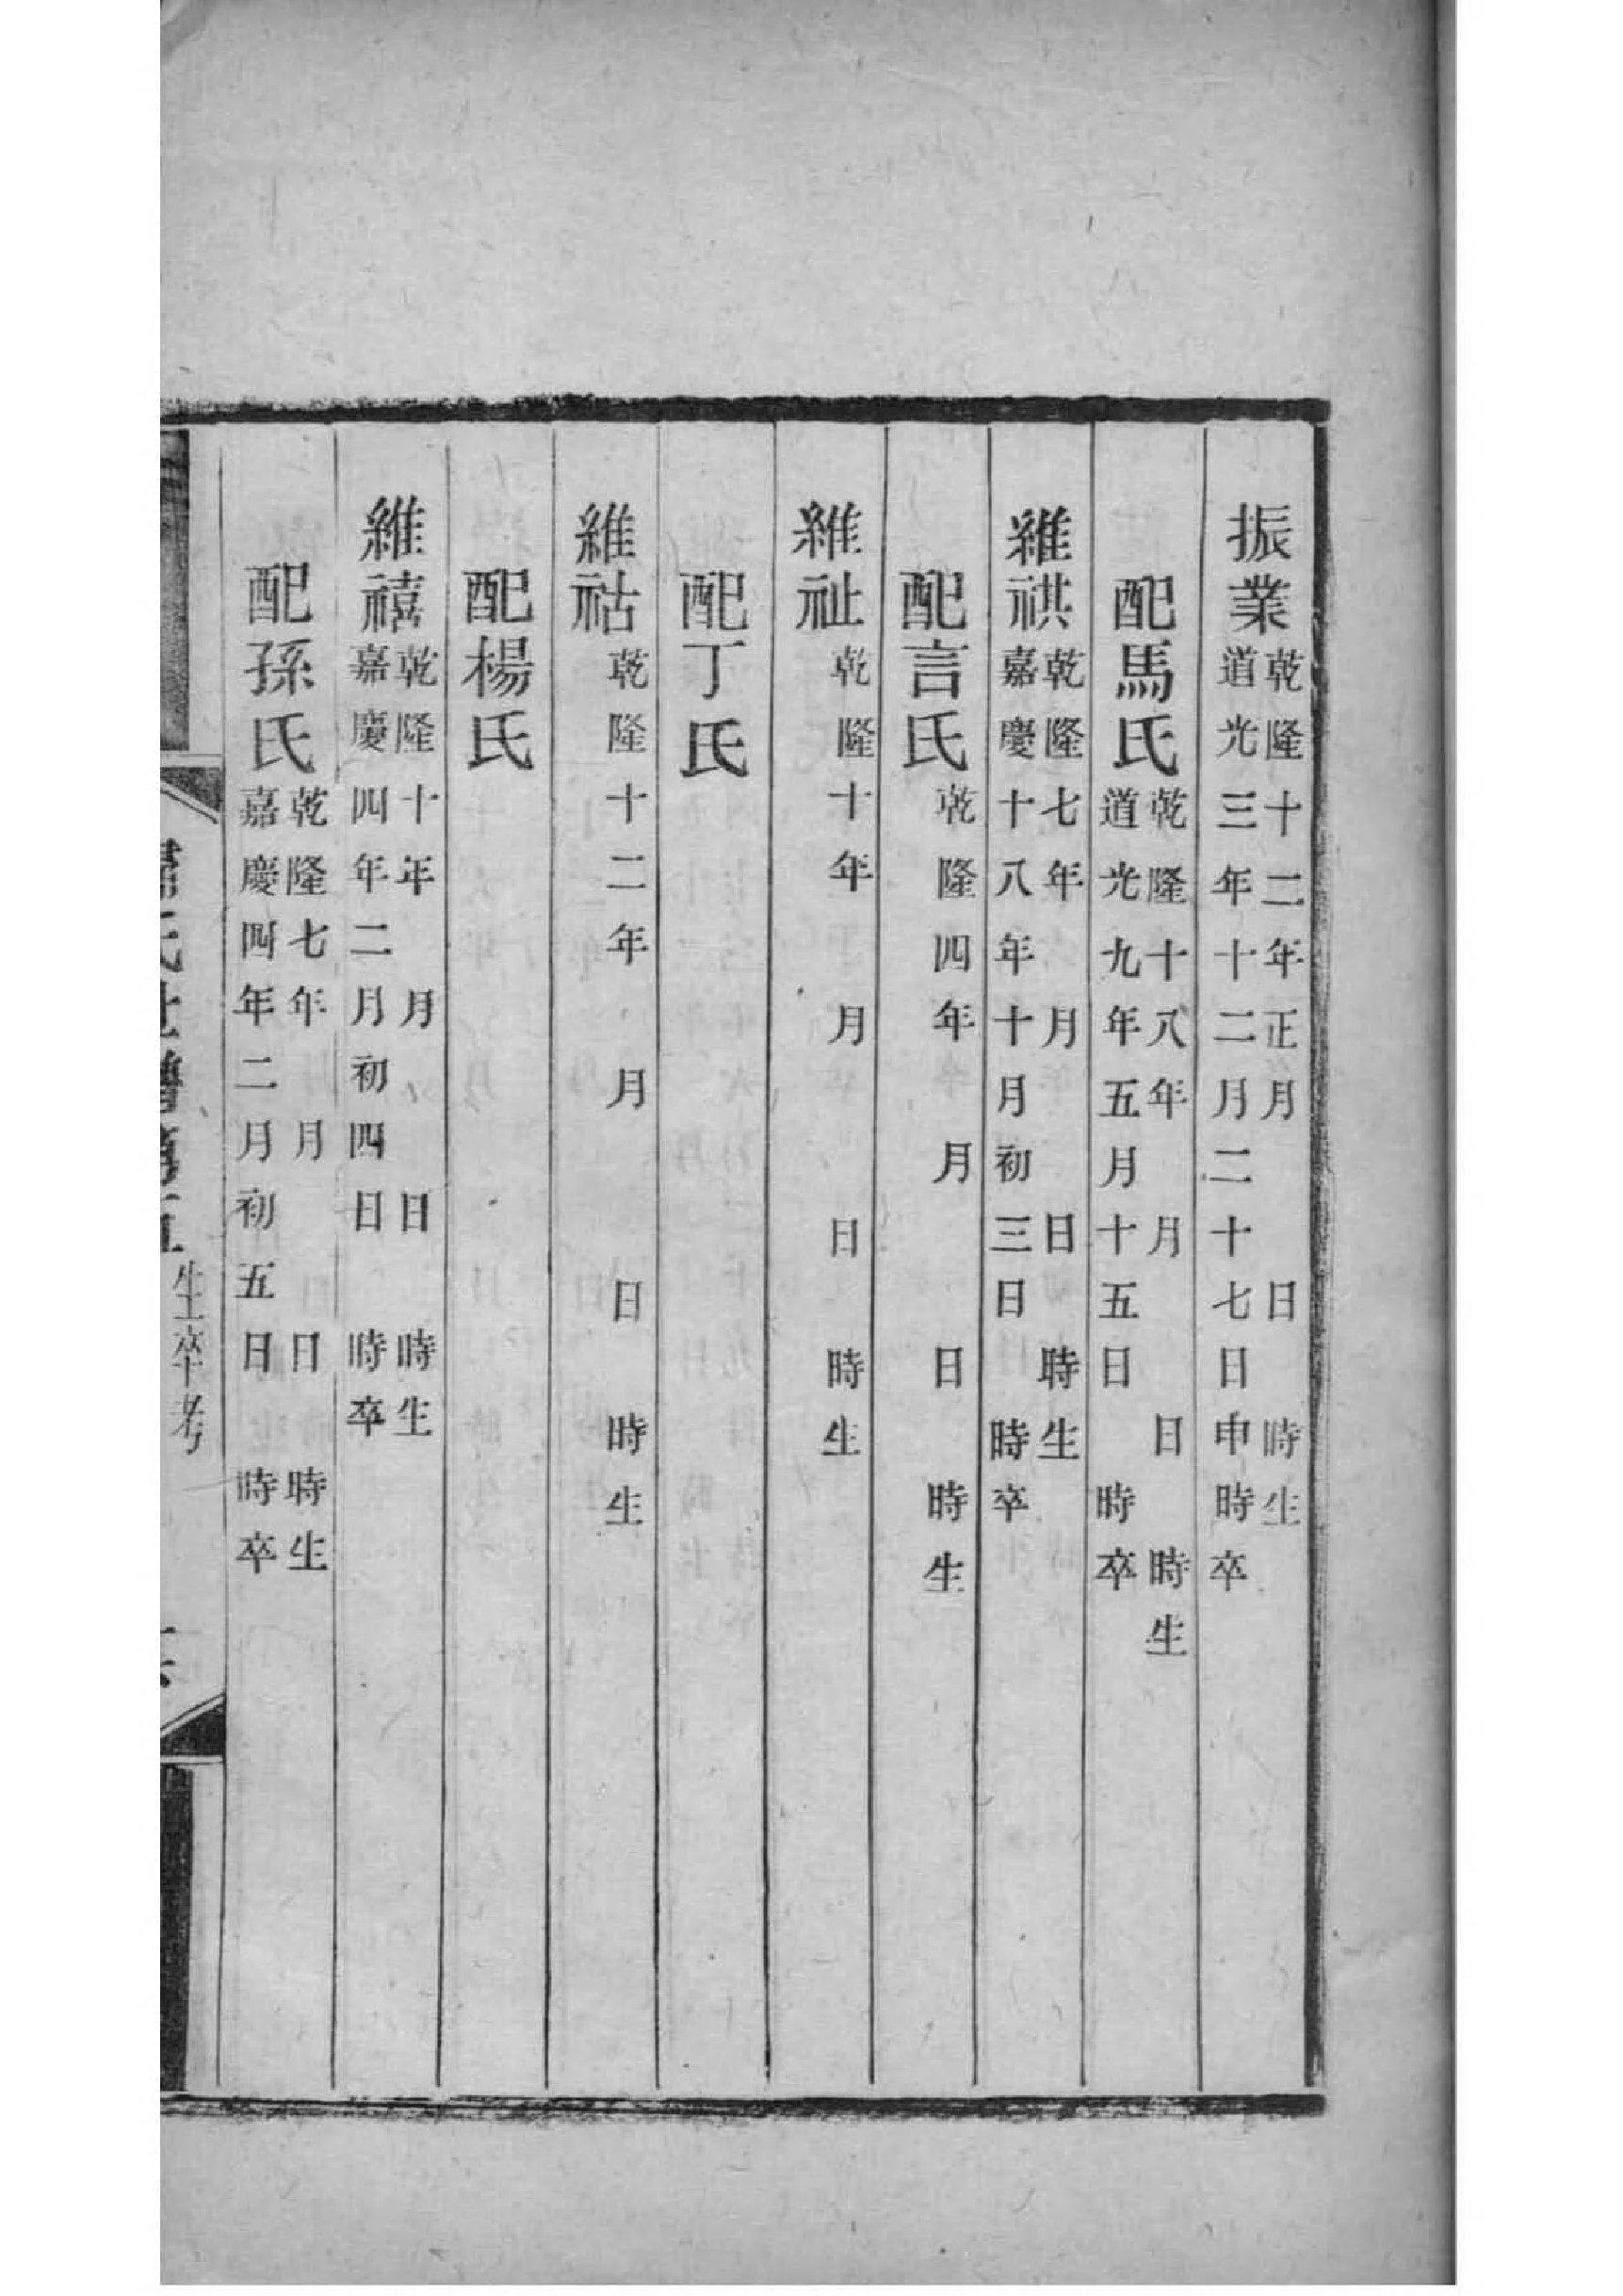 振業乾隆十二年正月 日 時生
道光三年十二月二十七日申時卒
配馬氏乾隆十八年 月 日 時生
道光九年五月十五日 時卒
維祺乾隆七年 月 日 時生
嘉慶十八年十月初三日 時卒
配言氏乾隆四年 月 日 時生
維祉乾隆十年 月 日 時生
配丁氏
維祜乾隆十二年 月 日 時生
配楊氏
維禧乾隆十年 月 日 時生
嘉慶四年二月初四日 時卒
配孫氏乾隆七年 月 日 時生
嘉慶四年二月初五日 時卒
生卒考